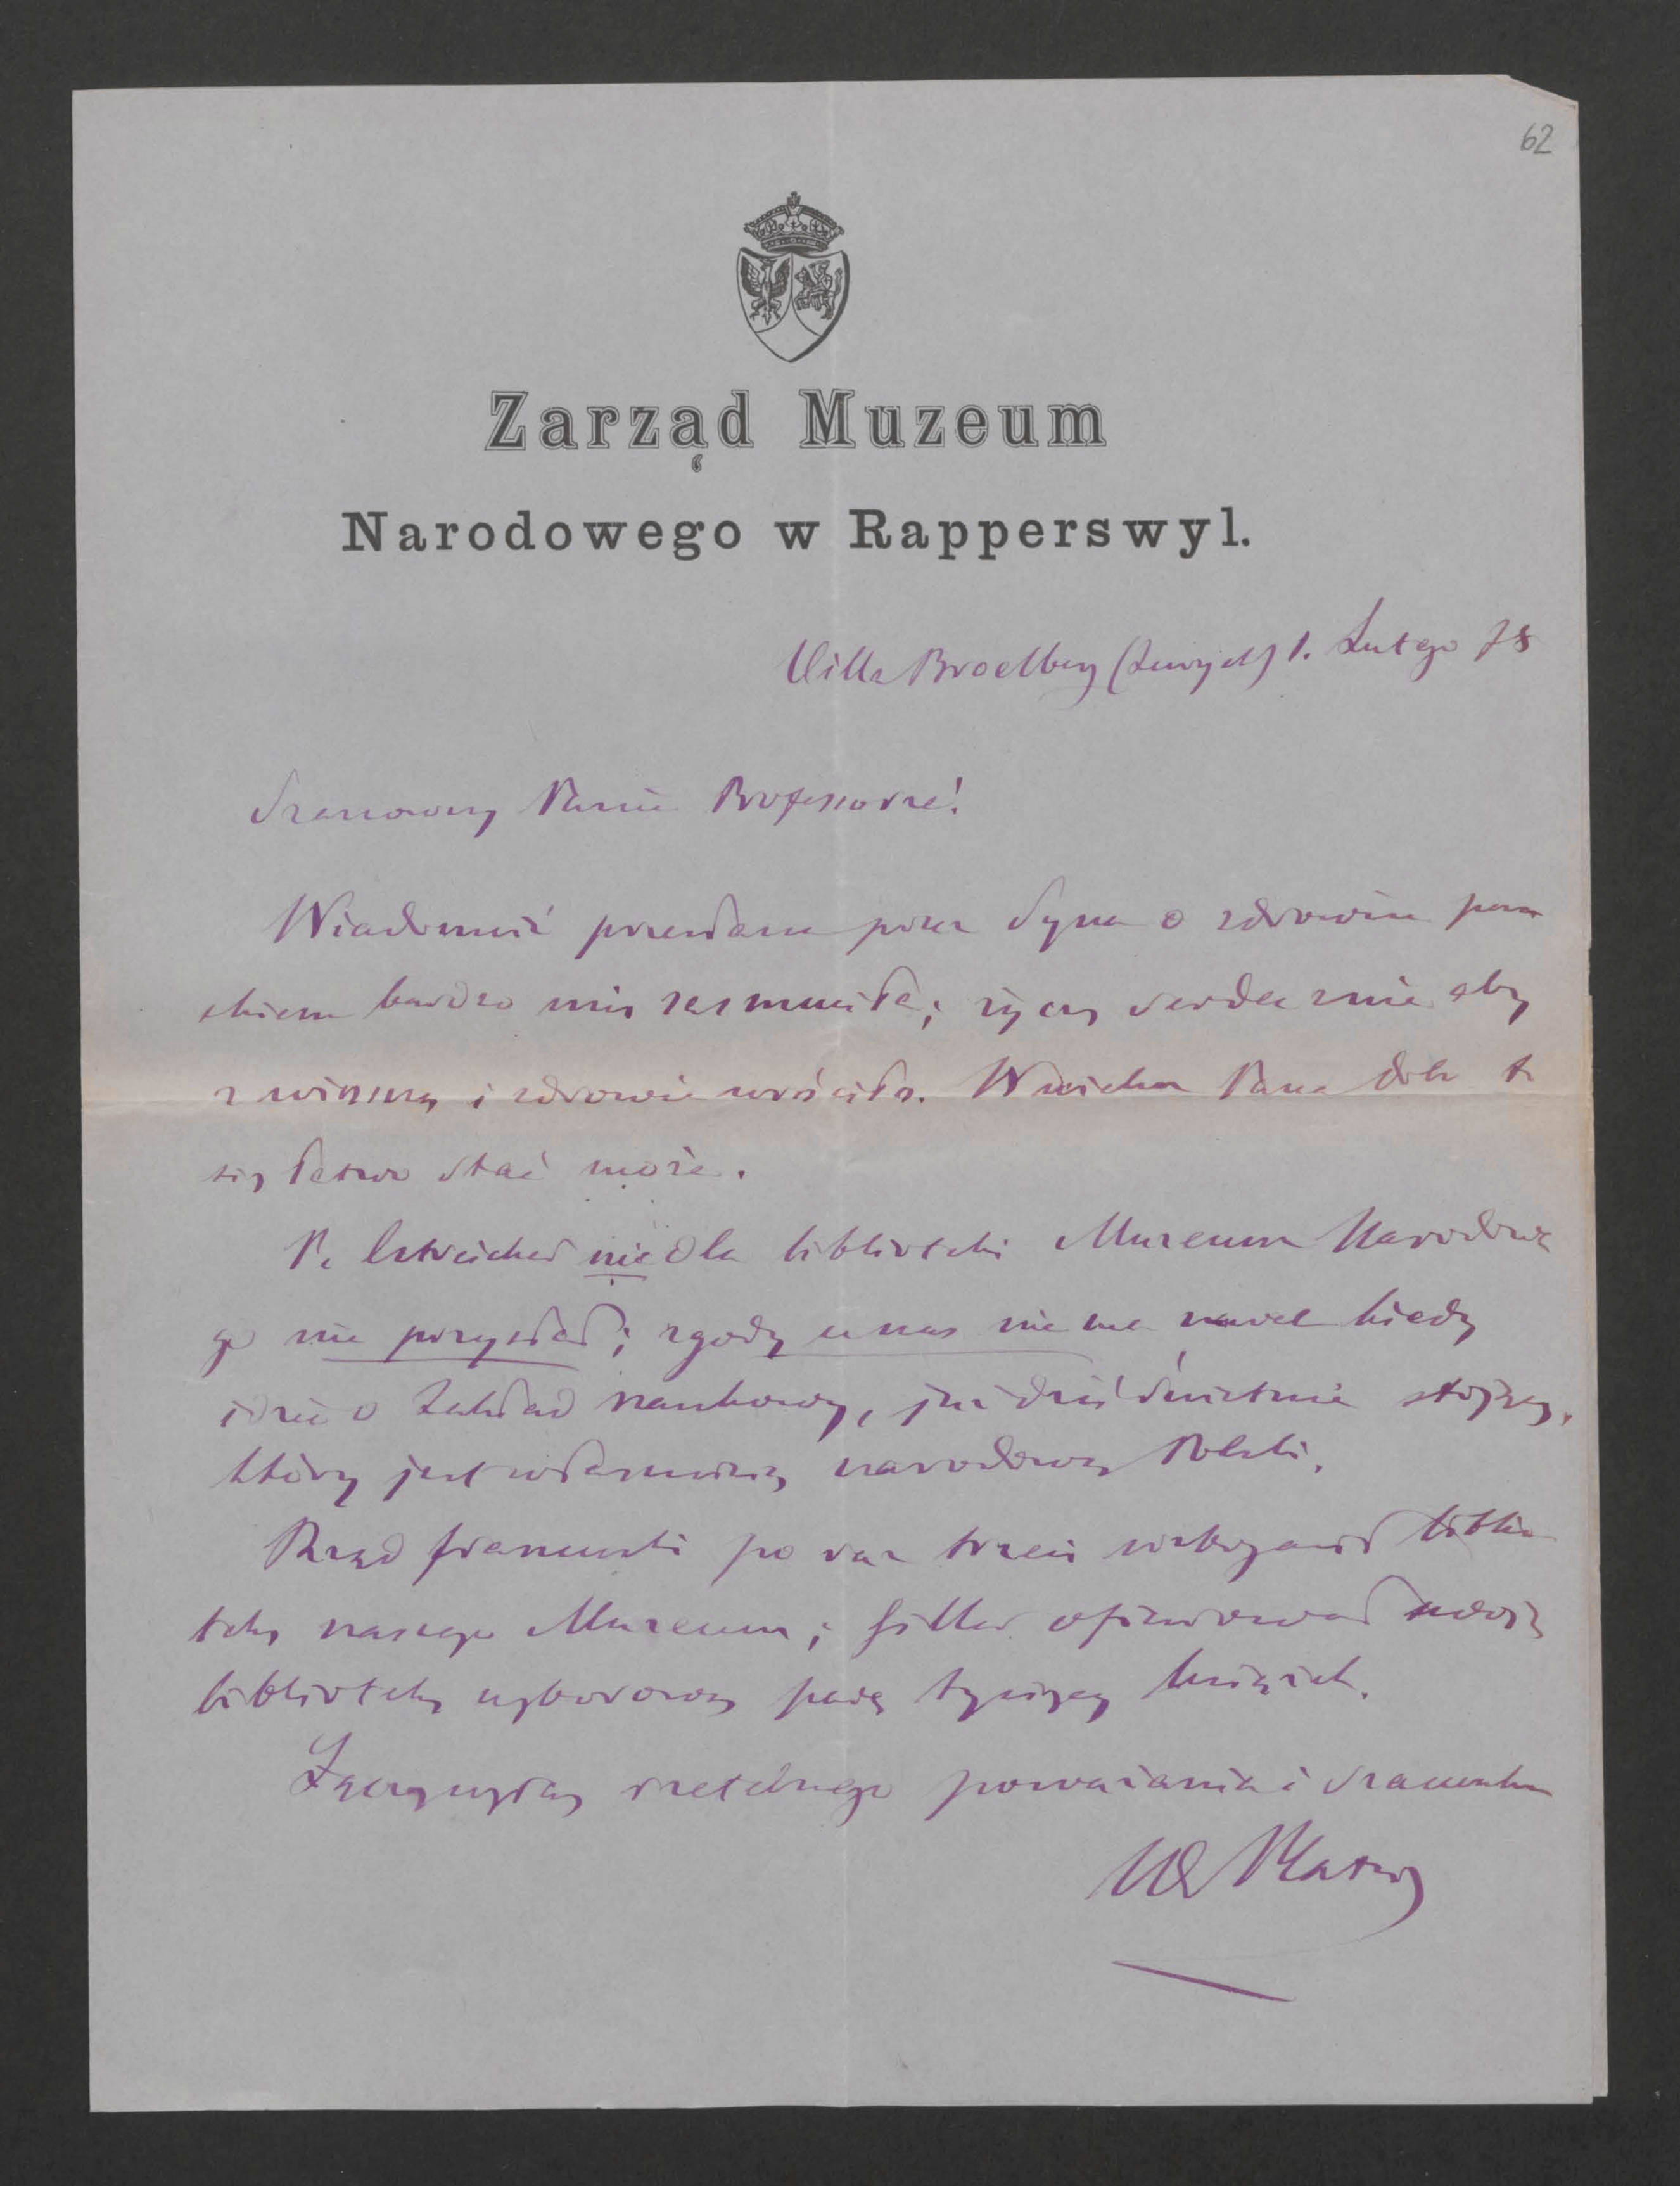 62
Zarząd Muzeum
Narodowego w Rapperswyl.
Villa Broelberg (Zurych) 1. Lutego 78
Szanowny Panie Professorze!
Wiadomość przesłana przez Syna o zdrowiu pań
skiem bardzo mię zasmuciła; życzę serdecznie aby
z wiosną i zdrowie wróciło. W wieku Pana dziś to
się łatwo stać może.
P. Estreicher nic dla biblioteki Muzeum Narodowe
go nie przysłał; zgody u nas nie ma nawet kiedy
idzie o Zakład naukowy, już dziś świetnie stojący,
który jest własnością narodową Polski.
Rząd francuski po raz trzeci wzbogacił biblio
tekę naszego Muzeum; Giller ofiarował swoją
bibliotekę wyborową parę tysięcy książek.
Łączę wyrazy rzetelnego poważania i szacunku
Wł Plater